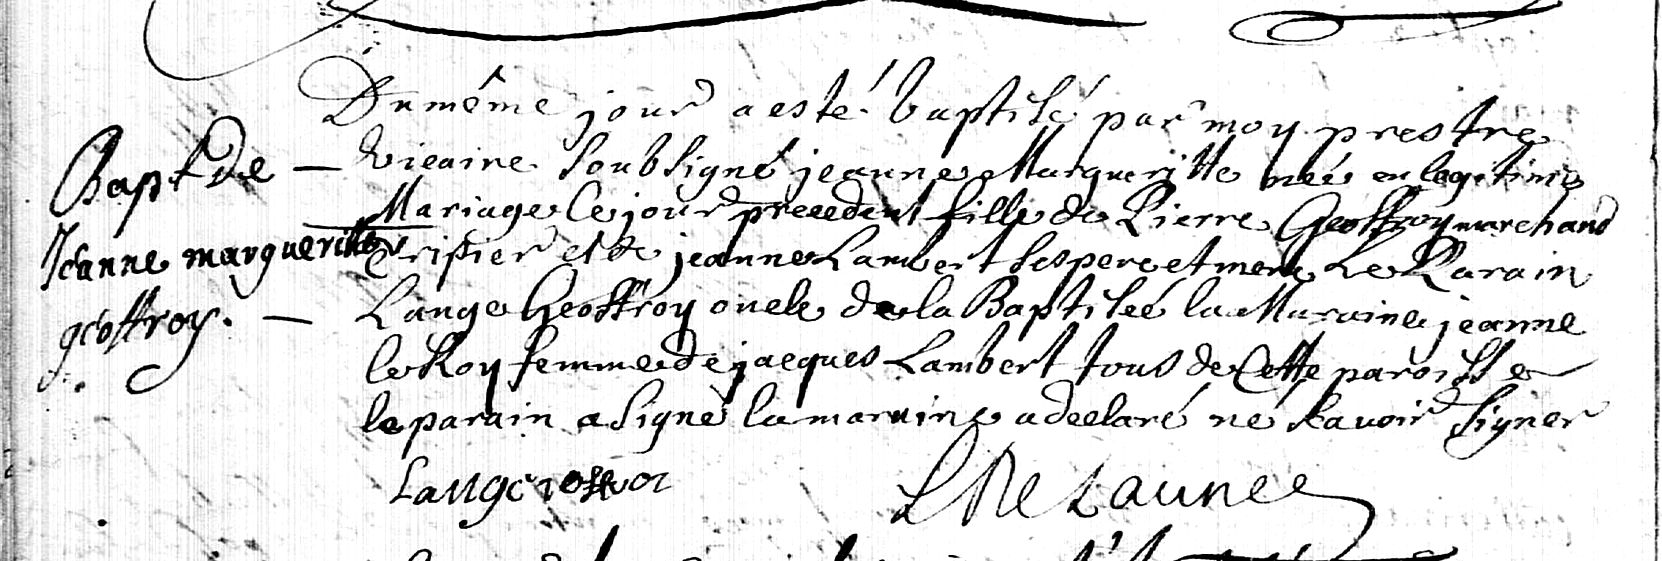 Du même jour a esté baptisé par moy prestre
Bapt de — vicaire soubsigné jeanne Margueritte née en legitime
Mariage le jour precedent fille de Pierre Geoffroy marchand
Jeanne margueritte
Tripier et de jeanne Lambert ses pere et mere Le Parain
geoffroy. — Lange Geoffroy oncle de la Baptisée la Maraine jeanne
le Roy femme de jacques Lambert tous de Cette paroisse
le parain a signé la maraine a declaré ne scavoir signer
Lange